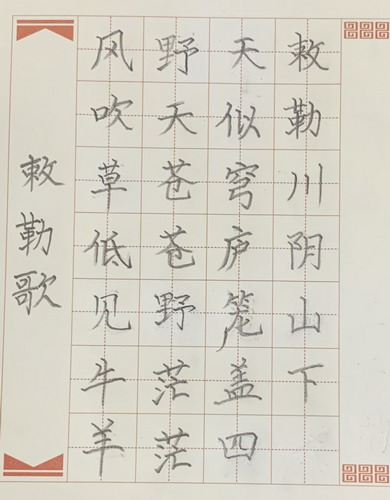 敕勒川阴山下
天似穹庐笼盖四
野天苍苍野茫茫
风吹草低见牛羊
敕勒歌